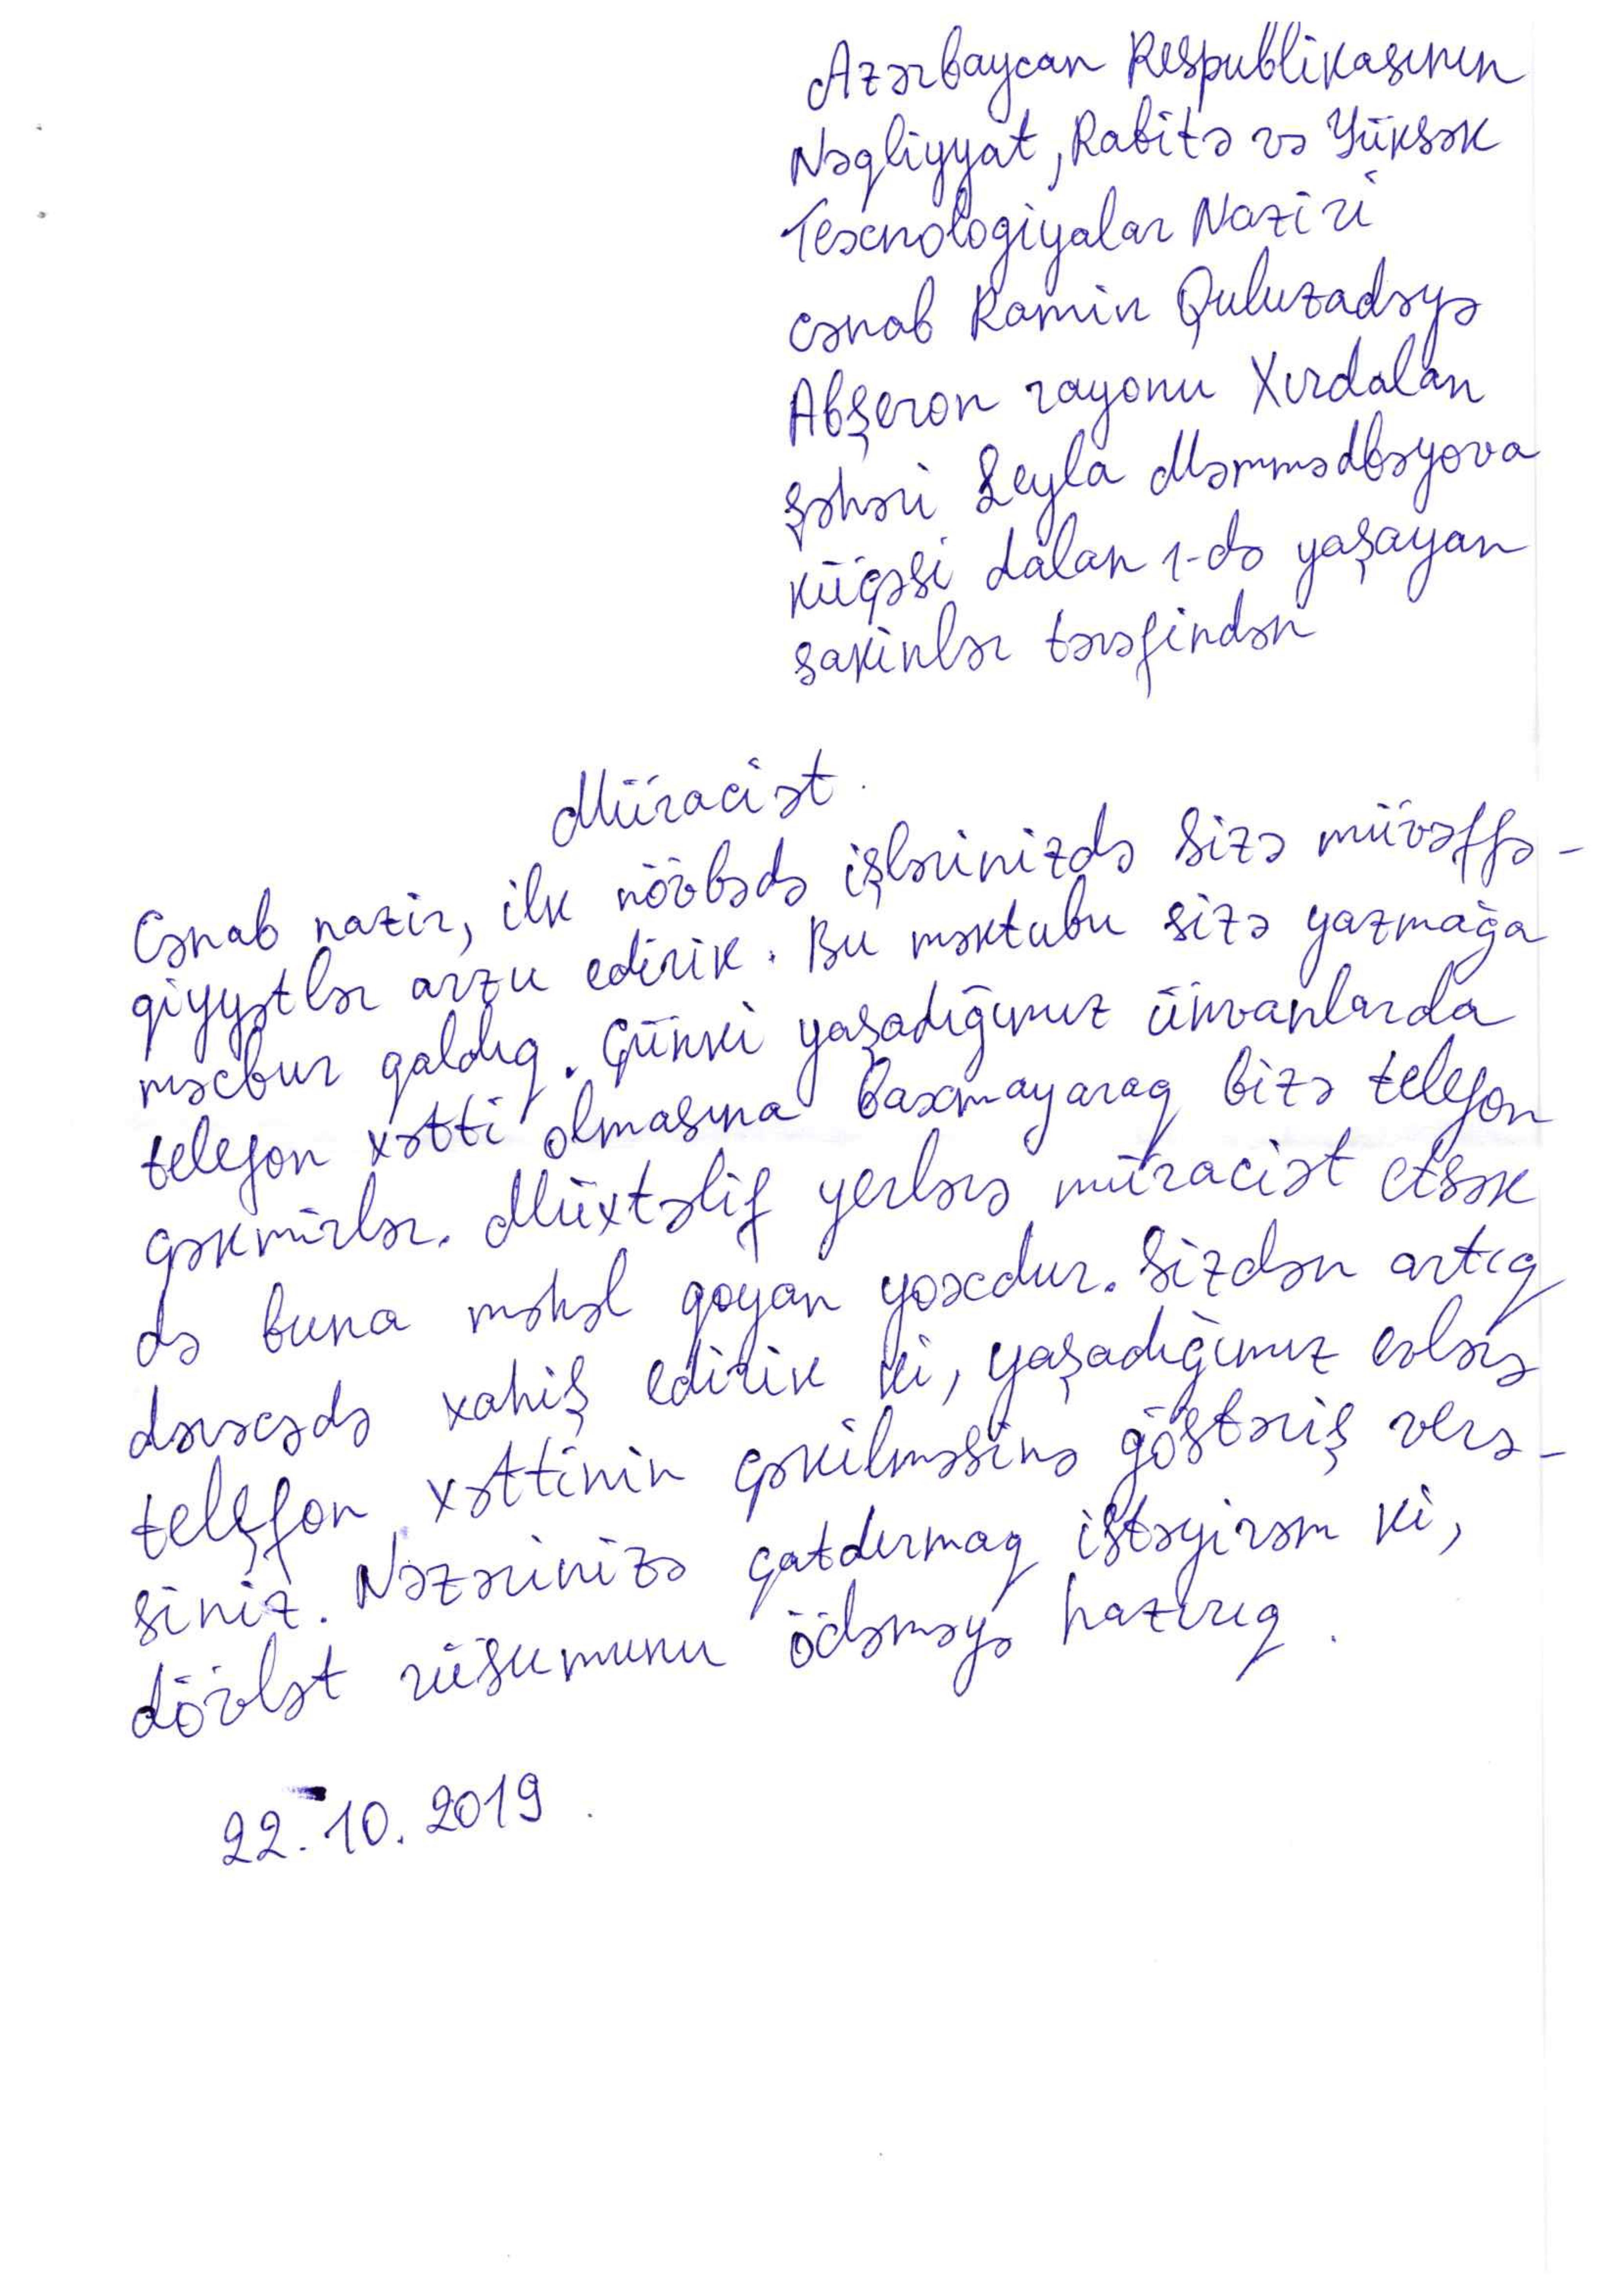 Azərbaycan Respublikasının
Nəqliyyat, Rabitə və Yüksək
Texnologiyalar Naziri
cənab Ramin Quluzadəyə
Abşeron rayonu Xırdalan
şəhəri Leyla Məmmədbəyova
küçəsi dalan 1-də yaşayan
sakinlər tərəfindən
Müraciət.
Cənab nazir, ilk növbədə işlərinizdə Sizə müvəffə-
qiyyətlər arzu edirik. Bu məktubu sizə yazmağa
məcbur qaldıq. Çünki yaşadığımız ünvanlarda
telefon xətti olmasına baxmayaraq bizə telefon
çəkmirlər. Müxtəlif yerlərə müraciət etsək
də buna məhəl qoyan yoxdur. Sizdən artıq
dərəcədə xahiş edirik ki, yaşadığımız evlərə
telefon xəttinin çəkilməsinə göstəriş verə-
siniz. Nəzərinizə çatdırmaq istəyirəm ki,
dövlət rüsumunu ödəməyə hazırıq.
22.10.2019.